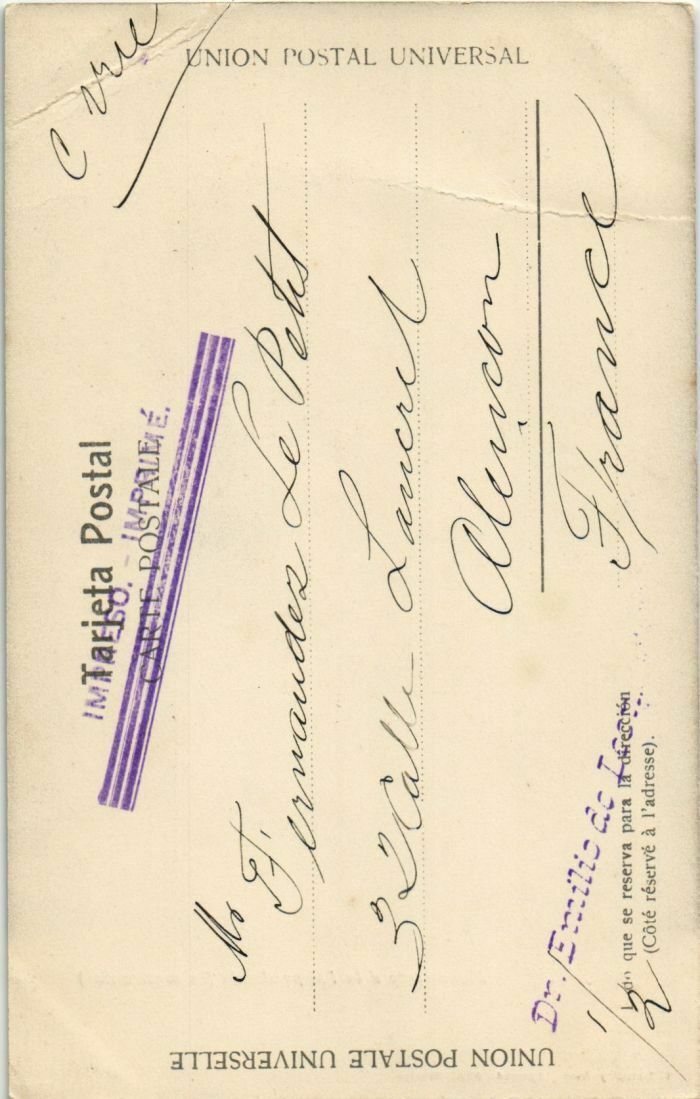 C Vue
UNION POSTAL UNIVERSAL
Tarjeta Postal
IMPRESO. - IMPRIMÉ.
CARTE POSTALE
Mr Fernandez Le Petit
32 Calle Lancrel
Alençon
France
Dr. Emilio de
Lado que se reserva para la dirección
(Côté réservé à l'adresse).
1/2
UNION POSTALE UNIVERSELLE